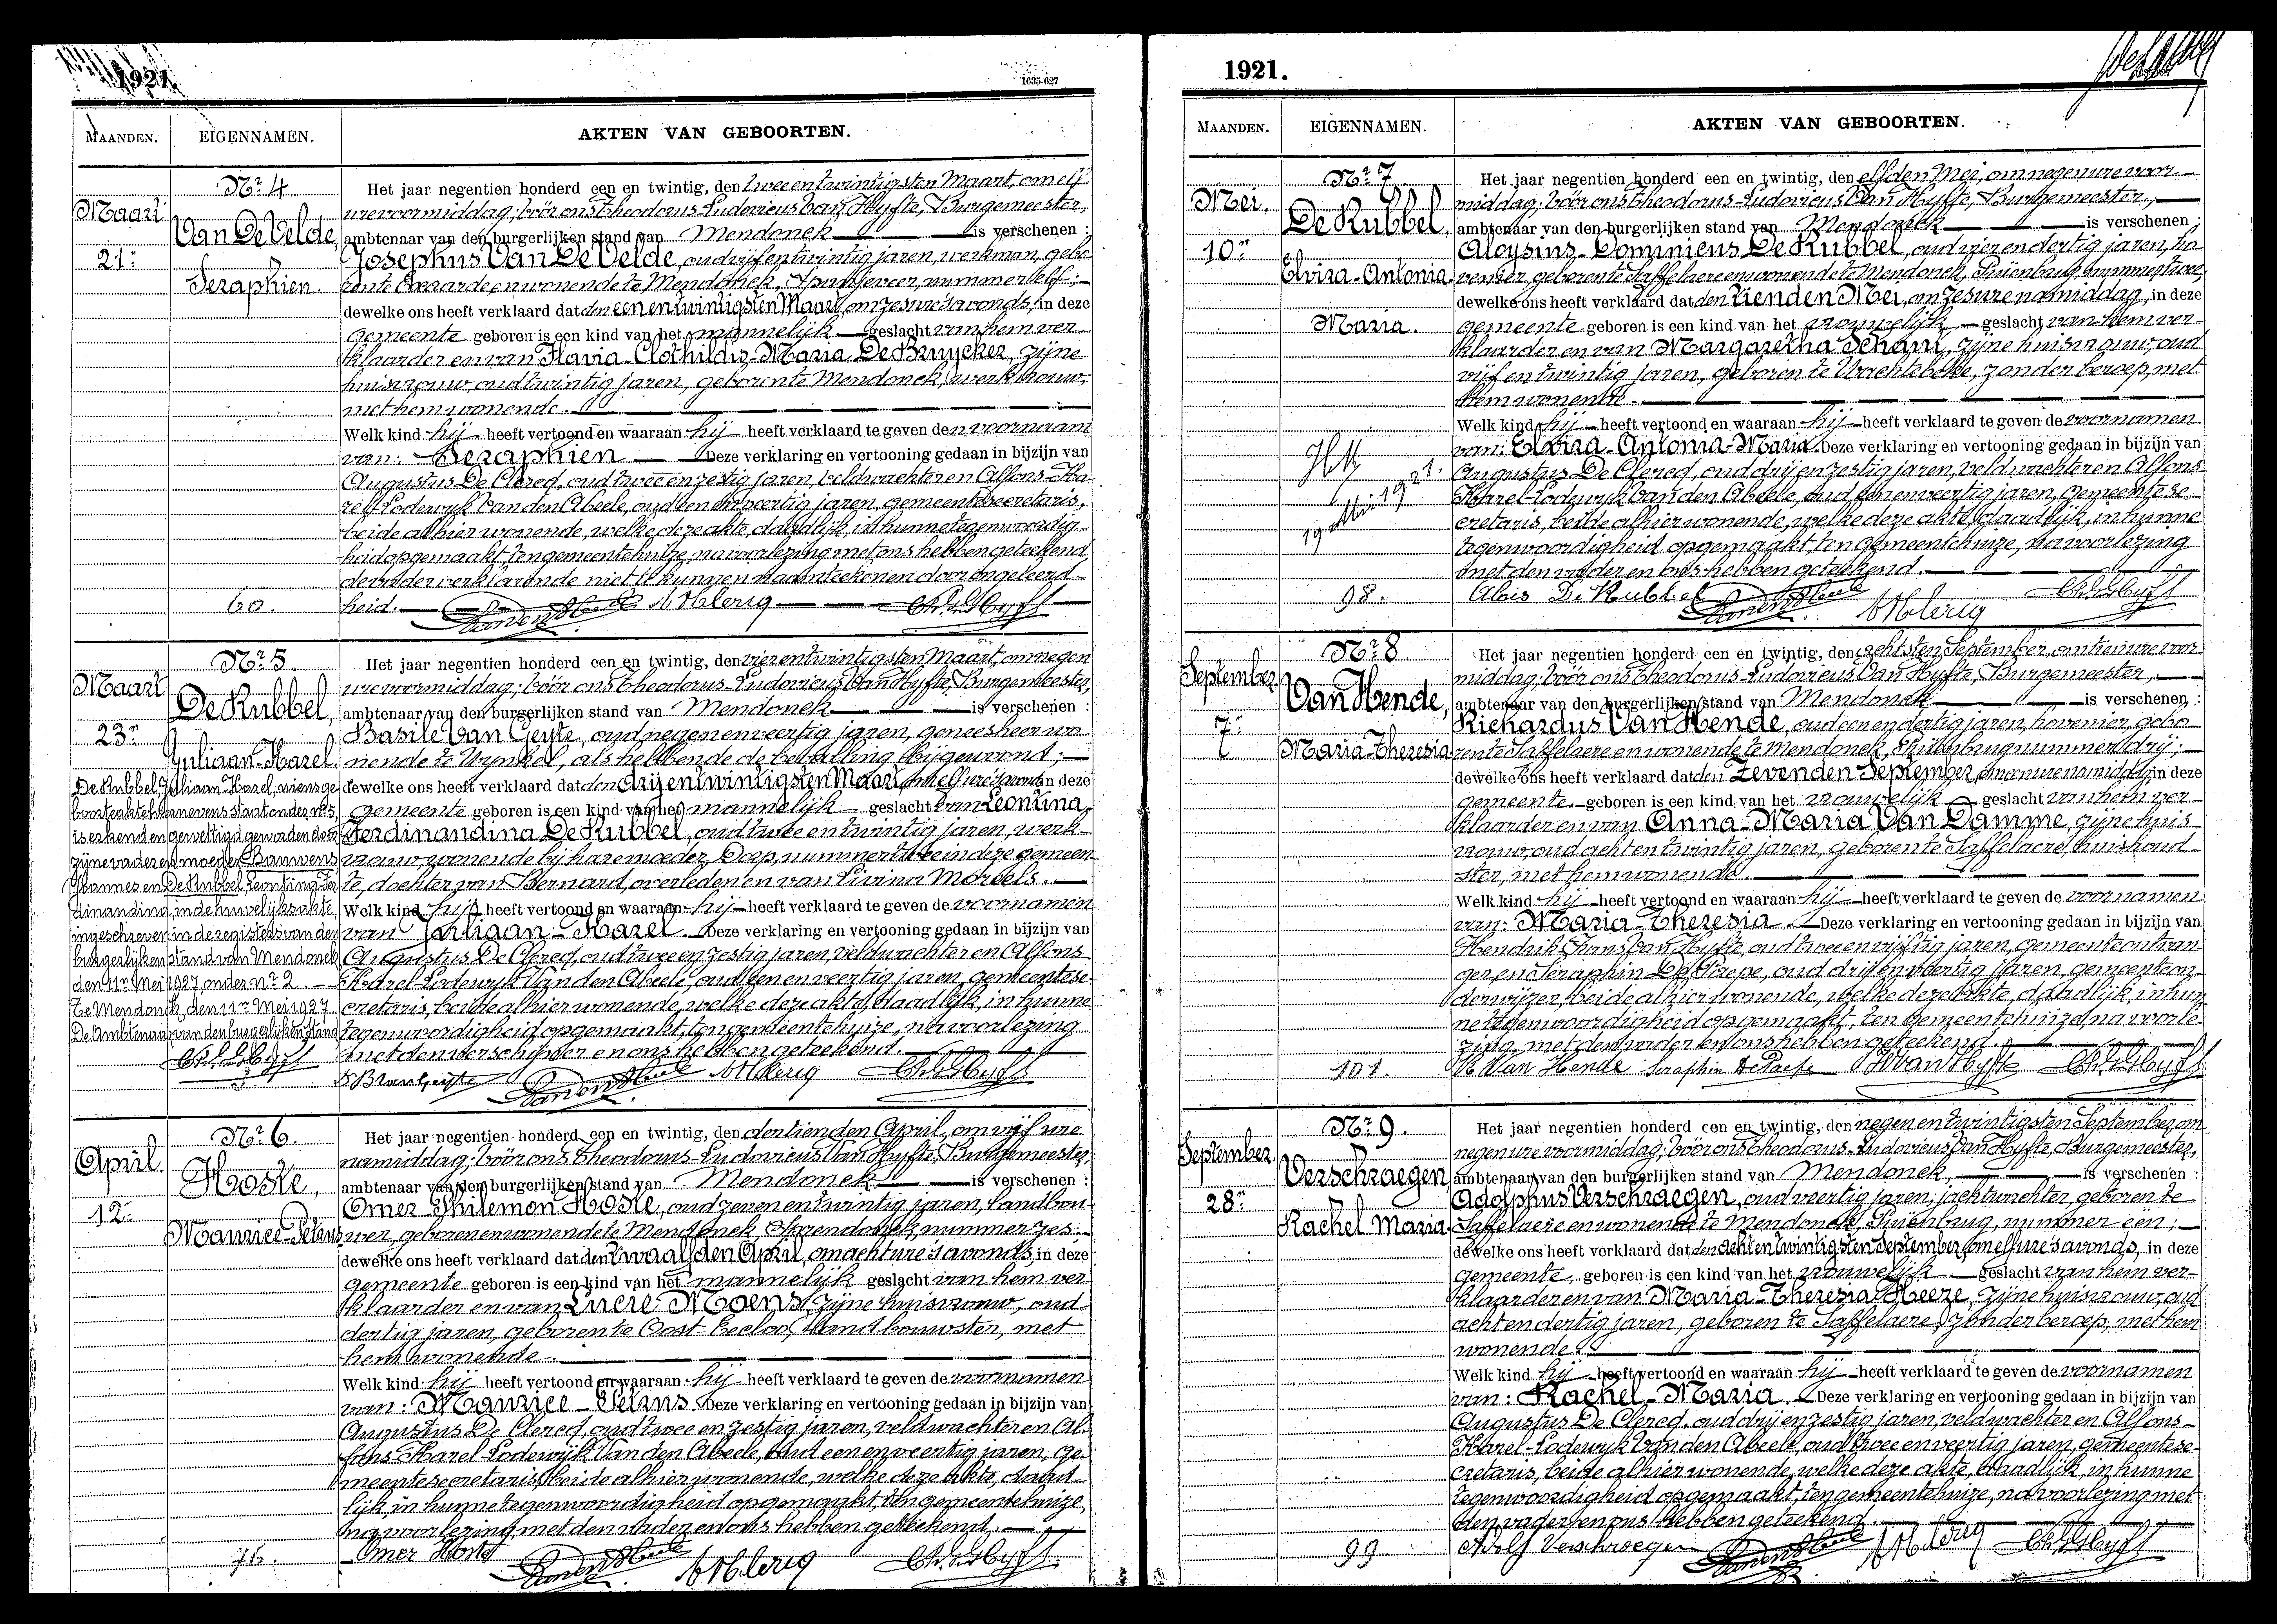 1921.
1635-627
MAANDEN.
EIGENNAMEN.
AKTEN VAN GEBOORTEN.
Maart
21n
Nr 4
Van De Velde,
Seraphien.
60.
Het jaar negentien honderd een en twintig, den twee en twintigsten Maart, om elf
ure voormiddag; vóór ons Theodorus-Ludovicus Van Hyfte, Burgemeester,
ambtenaar van den burgerlijken stand van Mendonck is verschenen :
Josephus Van De Velde, oud vijf en twintig jaren, werkman, gebo-
ren te Evaarde en wonende te Mendonck, nummer elf;
dewelke ons heeft verklaard dat den een en twintigsten Maart, om zes ure 's avonds, in deze
gemeente geboren is een kind van het mannelijk geslacht van hem ver-
klaarder en van Flavia-Clothildis-Maria De Bruycker, zijne
huisvrouw, oud twintig jaren, geboren te Mendonck, werkvrouw,
met hem wonende.
Welk kind hij heeft vertoond en waaraan hij heeft verklaard te geven den voornaam
van: Seraphien Deze verklaring en vertooning gedaan in bijzijn van
Augustus De Clercq, oud twee en zestig jaren, veldwachter en Alfons-Ka-
rel-Lodewyk Van den Abeele, oud een en veertig jaren, gemeentesecretaris,
beide alhier wonende, welke deze akte, daadlijk, in hunne tegenwoordig-
heid opgemaakt, ten gemeentehuize, na voorlezing met ons hebben geteekend,
de vader verklarende niet te kunnen naamteekenen door ongeleerd-
heid.
Maart
23n
Nr 5
De Rubbel,
Juliaan-Karel
De Rubbel, Juliaan-Karel, wiens ge-
boorteakte hier nevens staat onder nr 5,
is erkend en gewettigd geworden door
zijne vader en moeder Bauwens
Johannes en De Rubbel Leontina-Fer-
dinandina, in de huwelijksakte
ingeschreven in de registers van den
burgerlijken stand van Mendonck
den 11n Mei 1927, onder nr 2.
Te Mendonck, den 11n Mei 1927.
De Ambtenaar van den burgerlijken stand
Het jaar negentien honderd een en twintig, den vier en twintigsten Maart, om negen
ure voormiddag; vóór ons Theodorus-Ludovicus Van Hyfte, Burgemeester,
ambtenaar van den burgerlijken stand van Mendonck is verschenen :
Basile Van Geyte, oud negen en veertig jaren, geneesheer wo-
nende te Wynkel, als hebbende de bevalling bijgewoond;
dewelke ons heeft verklaard dat den drij en twintigsten Maart, om elf ure 's avonds in deze
gemeente geboren is een kind van het mannelijk geslacht van Leontina-
Ferdinandina De Rubbel, oud twee en twintig jaren, werk-
vrouw, wonende bij hare moeder, Dorp, nummer twee in deze gemeen-
te, dochter van Bernard, overleden en van Livina Moreels.
Welk kind hij heeft vertoond en waaraan hij heeft verklaard te geven de voornamen
van Juliaan-Karel. Deze verklaring en vertooning gedaan in bijzijn van
Augustus De Clercq, oud twee en zestig jaren, veldwachter en Alfons-
Karel-Lodewyk Van den Abeele, oud een en veertig jaren, gemeentese-
cretaris, beide alhier wonende, welke deze akte, daadlijk, in hunne
tegenwoordigheid opgemaakt, ten gemeentehuize, na voorlezing
met den verschijner en ons hebben geteekend.
April
12n
Nr 6.
Hoste,
Maurice-Petrus
76.
Het jaar negentien honderd een en twintig, den dertienden April, om vijf ure
namiddag; vóór ons Theodorus-Ludovicus Van Hyfte, Burgemeester,
ambtenaar van den burgerlijken stand van Mendonck is verschenen :
Omer-Philemon Hoste, oud zeven en twintig jaren, landbou-
wer, geboren en wonende te Mendonck, Sprendonck, nummer zes.
dewelke ons heeft verklaard dat den twaalfden April, om acht ure 's avonds, in deze
gemeente geboren is een kind van het mannelijk geslacht van hem ver-
klaarder en van Lucie Moens, zijne huisvrouw, oud
dertig jaren, geboren te Oost-Eecloo, landbouwster, met
hem wonende.
Welk kind hij heeft vertoond en waaraan hij heeft verklaard te geven de voornamen
van: Maurice-Petrus. Deze verklaring en vertooning gedaan in bijzijn van
Augustus De Clercq, oud twee en zestig jaren, veldwachter en Al-
fons-Karel-Lodewijk Van den Abeele, oud een en veertig jaren, ge-
meentesecretaris, beide alhier wonende, welke deze akte, daad-
lijk, in hunne tegenwoordigheid opgemaakt, ten gemeentehuize,
na voorlezing, met den vader en ons hebben geteekend.
Omer Hoste
1921.
MAANDEN.
EIGENNAMEN.
AKTEN VAN GEBOORTEN.
Mei,
10n
Nr 7
De Rubbel,
Elvira-Antonia
Maria.
98.
Het jaar negentien honderd een en twintig, den elfden Mei, om negen ure voor-
middag; vóór ons Theodorus-Ludovicus Van Hyfte, Burgemeester,
ambtenaar van den burgerlijken stand van Mendonck is verschenen :
Aloysius-Dominicus De Rubbel, oud vier en dertig jaren, ho-
venier, geboren te Saffelaere en wonende te Mendonck, Puienbrug, nummer twee;
dewelke ons heeft verklaard dat den tienden Mei, om zes ure namiddag, in deze
gemeente geboren is een kind van het vrouwelijk geslacht van hem ver-
klaarder en van Margaretha Scham, zijne huisvrouw, oud
vijf en twintig jaren, geboren te Wachtebeke, zonder beroep, met
hem wonende.
Welk kind hij heeft vertoond en waaraan hij heeft verklaard te geven de voornamen
van: Elvira-Antonia-Maria. Deze verklaring en vertooning gedaan in bijzijn van
Augustus De Clercq, oud drij en zestig jaren, veldwachter en Alfons-
Karel-Lodewyk Van den Abeele, oud een en veertig jaren, gemeentese-
cretaris, beide alhier wonende, welke deze akte, daadlijk, in hunne
tegenwoordigheid opgemaakt, ten gemeentehuize, na voorlezing
met den vader en ons hebben geteekend.
Alois De Rubbel
September
7n
Nr 8
Van Hende,
Maria-Theresia
101.
Het jaar negentien honderd een en twintig, den achtsten September, om tien ure voor-
middag; vóór ons Theodorus-Ludovicus Van Hyfte, Burgemeester,
ambtenaar van den burgerlijken stand van Mendonck is verschenen, :
Richardus Van Hende, oud een en dertig jaren, hovenier, gebo-
ren te Saffelaere en wonende te Mendonck, nummer drij;
dewelke ons heeft verklaard dat den zevenden September, om een ure namiddag in deze
gemeente geboren is een kind van het vrouwelijk geslacht van hem ver-
klaarder en van Anna-Maria Van Damme, zijne huis-
vrouw, oud acht en twintig jaren, geboren te Saffelaere, huishoud-
ster, met hem wonende.
Welk kind hij heeft vertoond en waaraan hij heeft verklaard te geven de voornamen
van: Maria-Theresia. Deze verklaring en vertooning gedaan in bijzijn van
Hendrik-Frans Van Hyfte, oud twee en vijftig jaren, gemeenteontvan-
ger en Seraphin De Paepe, oud drij en veertig jaren, gemeenteon-
derwijzer, beide alhier wonende, welke deze akte, daadlijk, in hun-
ne tegenwoordigheid opgemaakt, ten gemeentehuize, na voorle-
zing, met den vader en ons hebben geteekend.
R. Van Hende Seraphin De Paepe H Van Hyfte
September
28n
Nr 9.
Verschraegen
Rachel Maria
99
Het jaar negentien honderd een en twintig, den negen en twintigsten September, om
negen ure voormiddag; vóór ons Theodorus-Ludovicus Van Hyfte, Burgemeester,
ambtenaar van den burgerlijken stand van Mendonck, is verschenen :
Adolphus Verschraegen, oud veertig jaren, jachtwachter, geboren te
Saffelaere en wonende te Mendonck, Puienbrug, nummer een;
dewelke ons heeft verklaard dat den acht en twintigsten September, om elf ure 's avonds, in deze
gemeente, geboren is een kind van het vrouwelijk geslacht van hem ver-
klaarder en van Maria-Theresia Heeze, zijne huisvrouw, oud
acht en dertig jaren, geboren te Saffelaere, zonder beroep, met hem
wonende.
Welk kind hij heeft vertoond en waaraan hij heeft verklaard te geven de voornamen
van: Rachel-Maria. Deze verklaring en vertooning gedaan in bijzijn van
Augustus De Clercq, oud drij en zestig jaren, veldwachter en Alfons-
Karel-Lodewyk Van den Abeele, oud twee en veertig jaren, gemeentese-
cretaris, beide alhier wonende, welke deze akte, daadlijk, in hunne
tegenwoordigheid opgemaakt, ten gemeentehuize, na voorlezing met
den vader en ons hebben geteekend.
Adolf Verschraegen